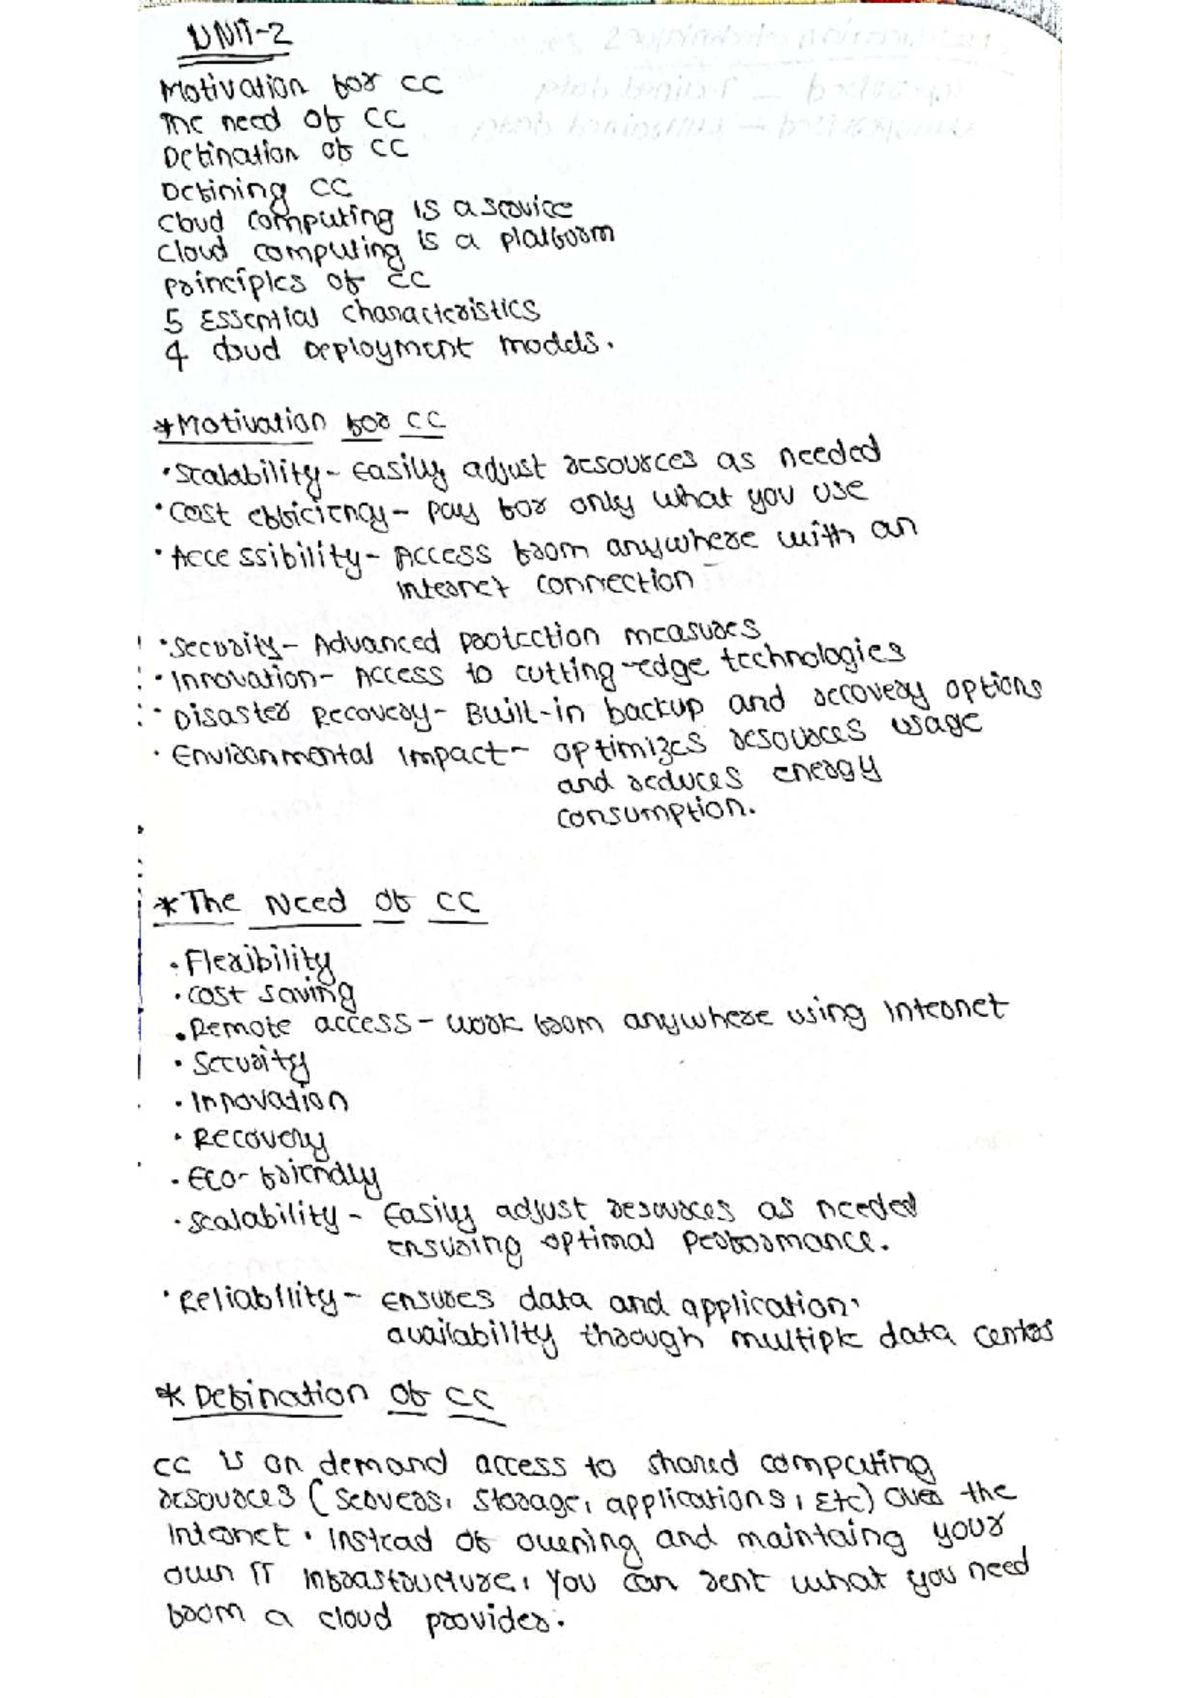 UNIT-2
Motivation for CC
The need of CC
Defination of CC
Defining CC
Cloud computing is a service
Cloud computing is a platform
principles of CC
5 Essential characteristics
4 cloud Deployment models.
*Motivation for CC
•Scalability- Easily adjust resources as needed
•Cost efficiency- pay for only what you use
•Accessibility- Access from anywhere with an
internet connection
•Security- Advanced protection measures
•Innovation- Access to cutting-edge technologies
•Disaster Recovery- Built-in backup and recovery options
•Environmental impact- optimizes resources usage
and reduces energy
consumption.
*The Need of CC
•Flexibility
•cost saving
•Remote access- work from anywhere using internet
•Security
•Innovation
•Recovery
•Eco-friendly
•scalability- Easily adjust resources as needed
ensuring optimal performance.
•Reliability- ensures data and application
availability through multiple data centers
*Defination of CC
CC is on demand access to shared computing
resources (servers, storage, applications, Etc) over the
internet. instead of owening and maintaing your
own IT infrastructure, you can rent what you need
from a cloud provider.